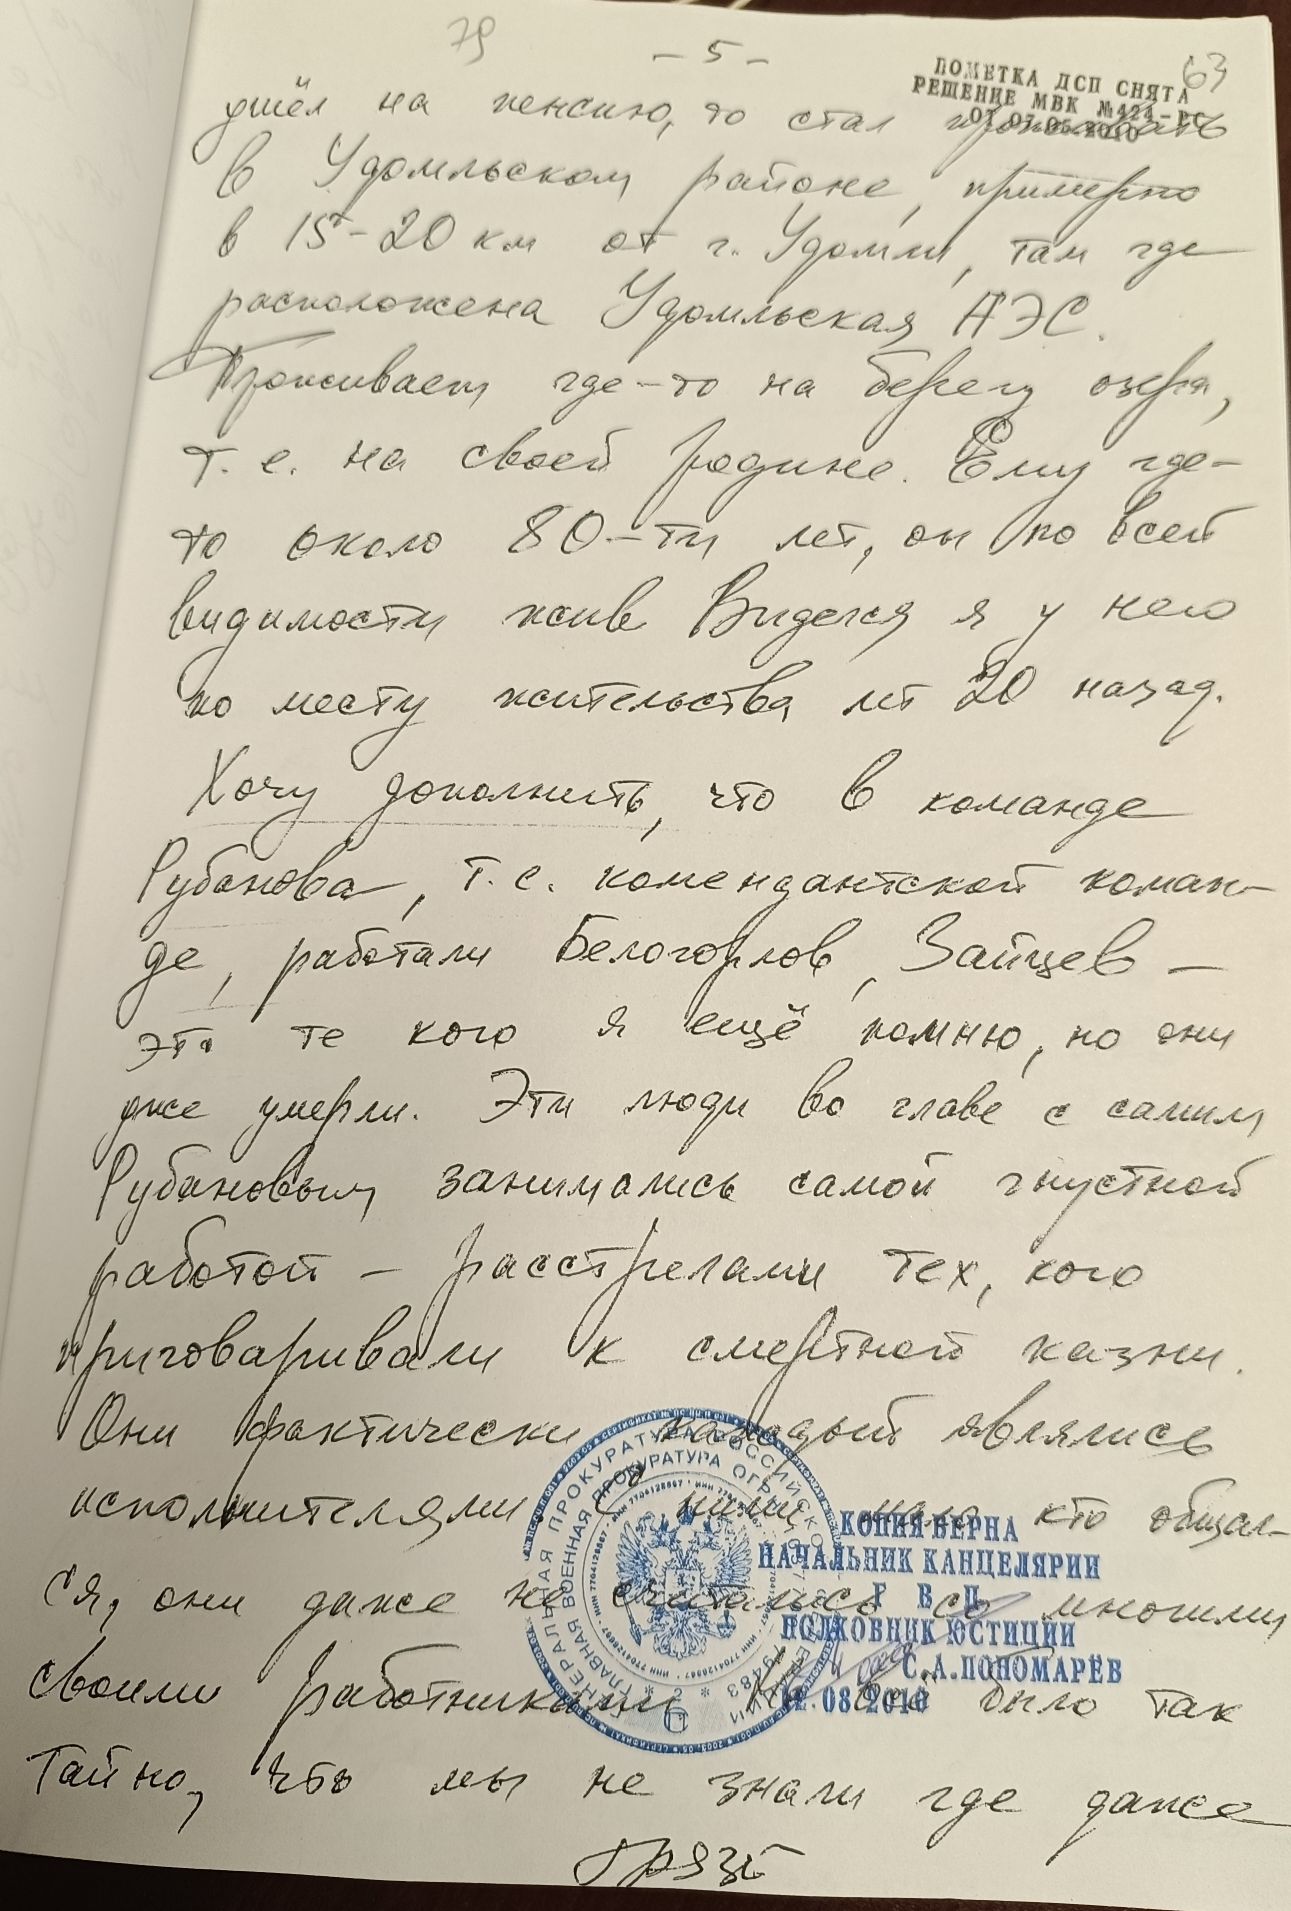 79
- 5 -
63
ПОМЕТКА ДСП СНЯТА
РЕШЕНИЕ МВК №424-РС
ОТ 07.05.2010
ушёл на пенсию, то стал проживать
в Удомльском районе, примерно
в 15-20 км от г. Удомли, там где
расположена Удомльская АЭС.
Проживает где-то на берегу озера,
т.е. на своей родине. Ему где-
то около 80-ти лет, он по всей
видимости жив Виделся я у него
по месту жительства лет 20 назад.
Хочу дополнить, что в команде
Рубанова, т.е. комендантской коман-
де, работали Белогорлов, Зайцев -
это те кого я ещё помню, но они
уже умерли. Эти люди во главе с самим
Рубановым занимались самой гнустной
работой - расстрелами тех, кого
приговаривали к смертной казни.
Они фактически являлись
исполнителями С ними мало кто общал-
ся, они даже не считались со многими
своими работниками всё было так
тайно, что мы не знали где даже
КОПИЯ ВЕРНА
НАЧАЛЬНИК КАНЦЕЛЯРИИ
Г В П
ПОЛКОВНИК ЮСТИЦИИ
С.А.ПОНОМАРЁВ
12.08.2010
ГЕНЕРАЛЬНАЯ ПРОКУРАТУРА РОССИЙСКОЙ ФЕДЕРАЦИИ
ГЛАВНАЯ ВОЕННАЯ ПРОКУРАТУРА
ИНН 7704126867
* 2 *